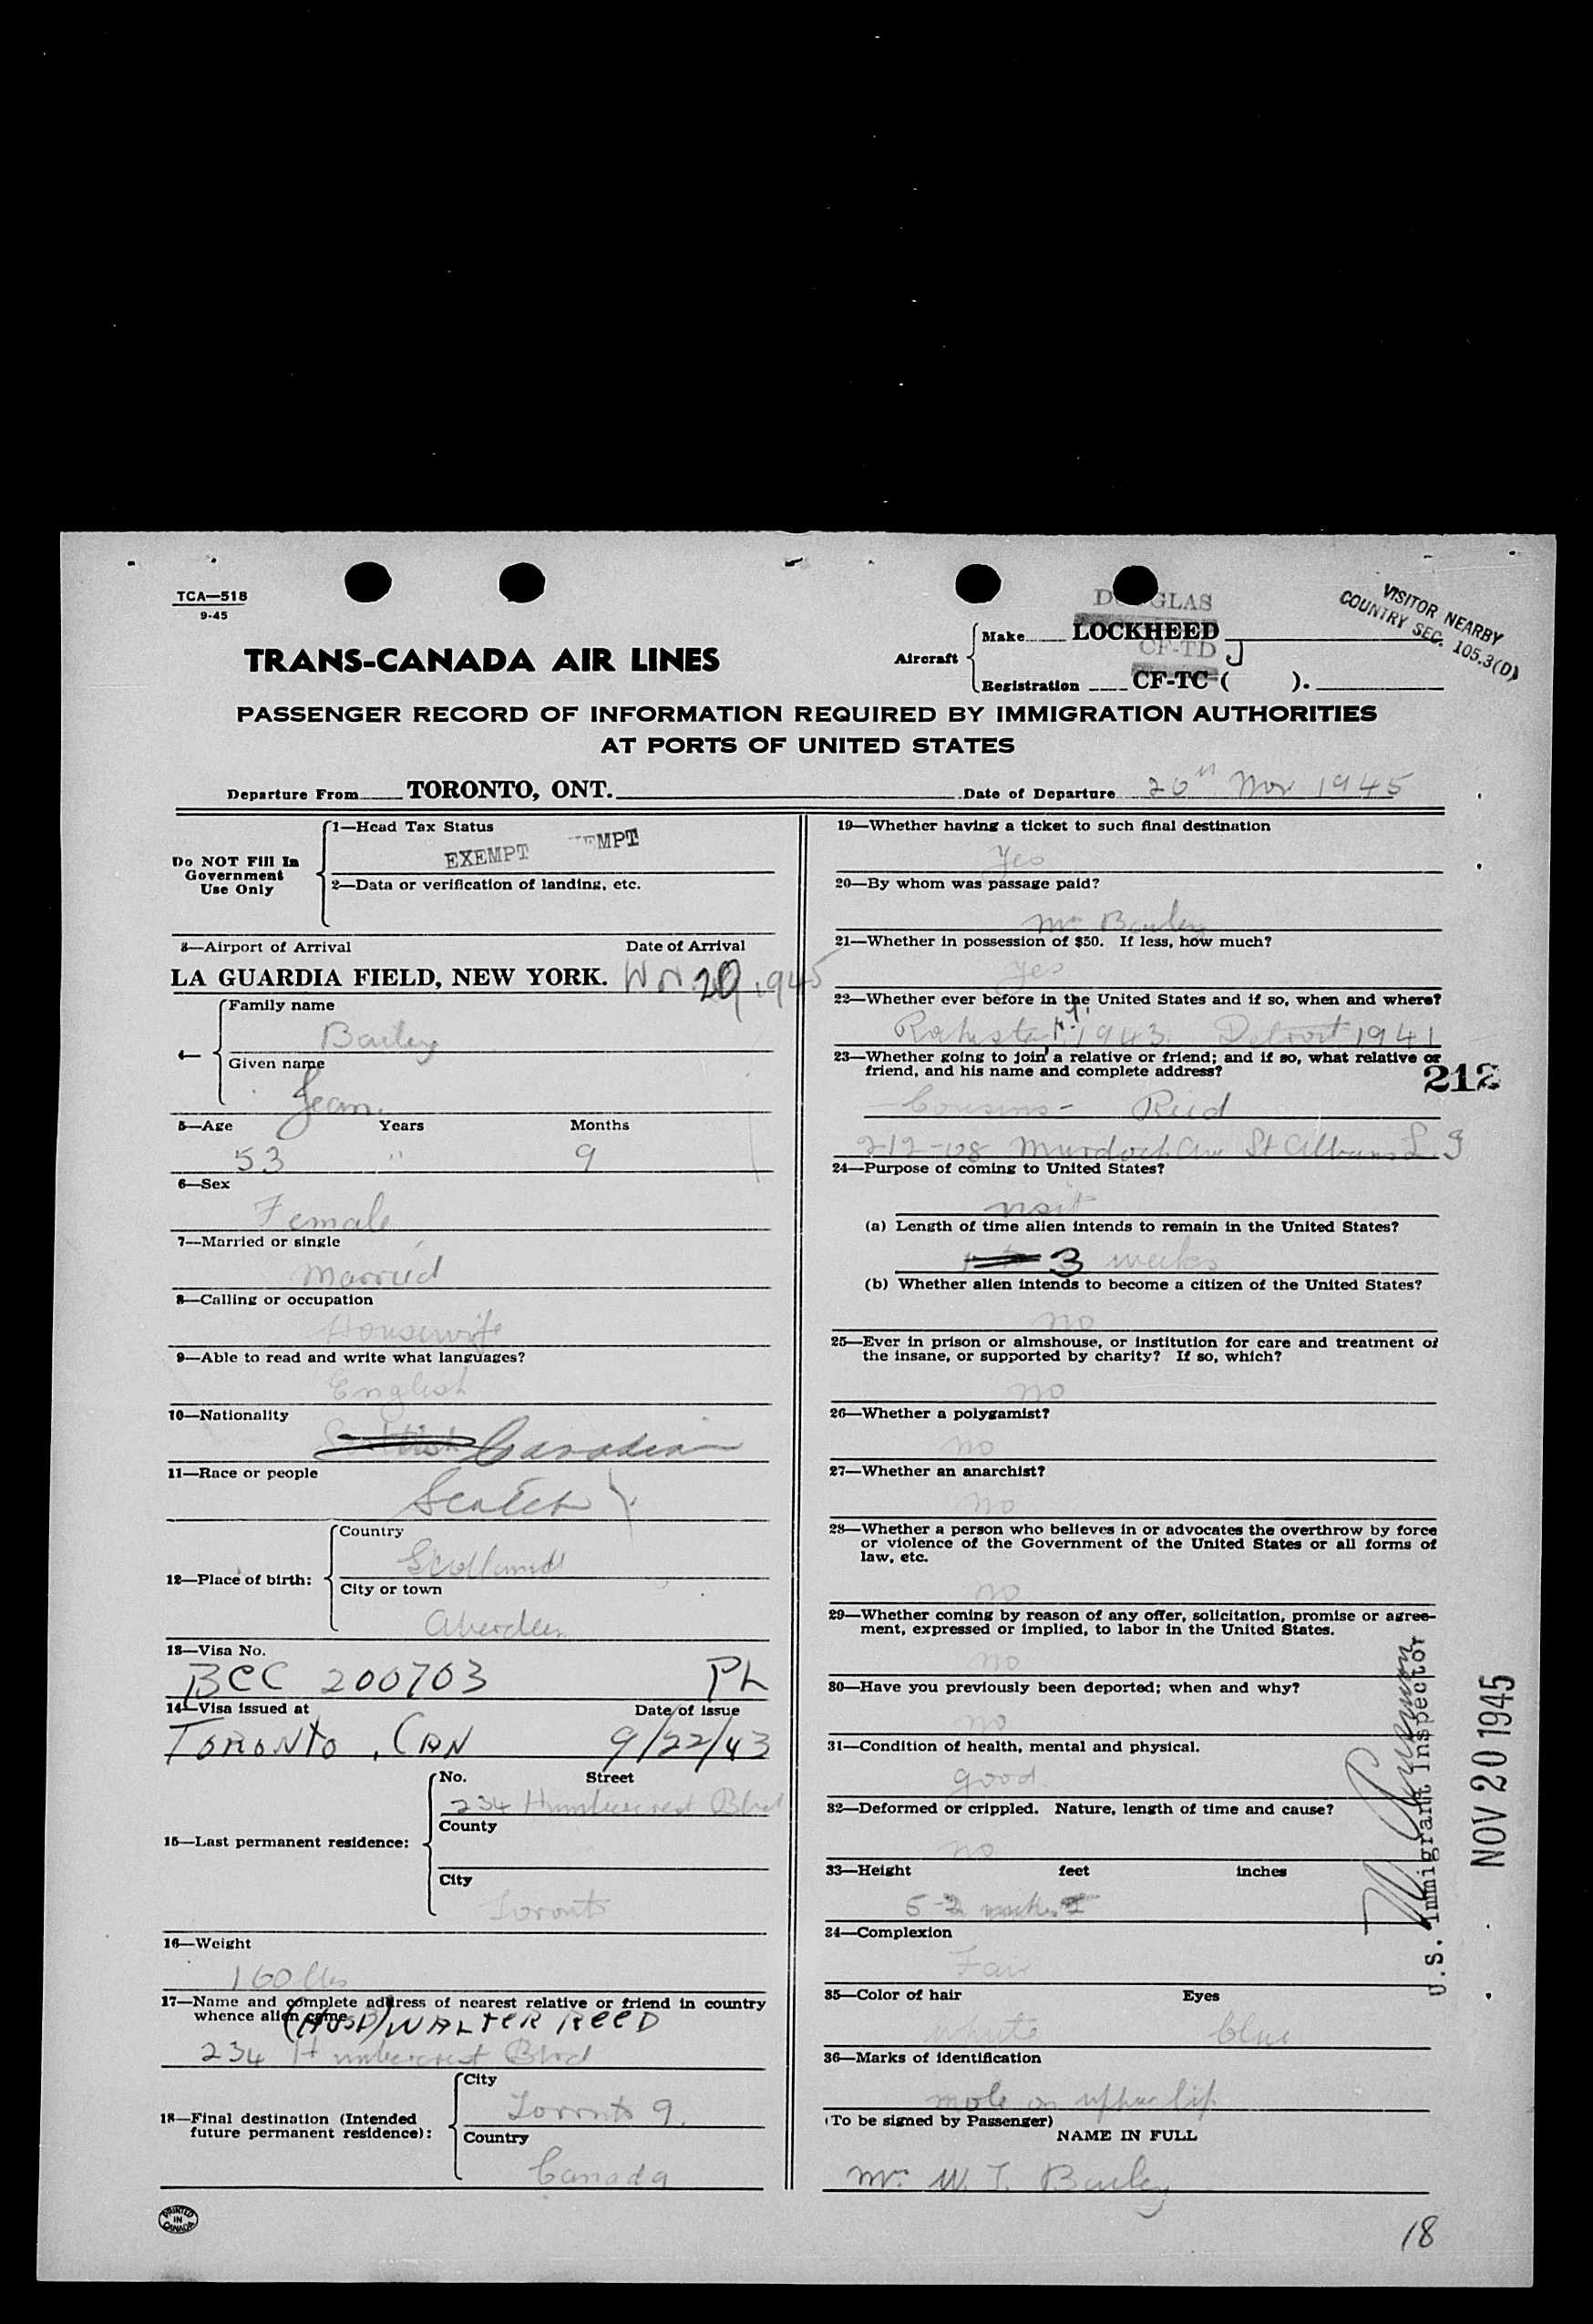 TCA—518
9-45
DOUGLAS
VISITOR NEARBY
COUNTRY SEC. 105.3(D)
TRANS-CANADA AIR LINES
Aircraft
Make LOCKHEED
CF-TD J
Registration CF-TC ( ).
PASSENGER RECORD OF INFORMATION REQUIRED BY IMMIGRATION AUTHORITIES
AT PORTS OF UNITED STATES
Departure From TORONTO, ONT. Date of Departure 20th Nov 1945
Do NOT Fill In
Government
Use Only
1—Head Tax Status
EXEMPT EMPT
2—Data or verification of landing, etc.
3—Airport of Arrival Date of Arrival
LA GUARDIA FIELD, NEW YORK. Nov. 20, 1945
4—
Family name
Bailey
Given name
Jean.
5—Age Years Months
53 " 9
6—Sex
Female
7—Married or single
Married
8—Calling or occupation
Housewife
9—Able to read and write what languages?
English
10—Nationality
Scottish Canadian
11—Race or people
Scotch
12—Place of birth:
Country
Scotland
City or town
Aberdeen
13—Visa No.
BCC 200703 PL
14—Visa issued at Date of issue
TORONTO, CAN 9/22/43
15—Last permanent residence:
No. Street
234 Humbercrest Blvd
County
City
Toronto
16—Weight
160 lbs
17—Name and complete address of nearest relative or friend in country
whence alien came
(HUSB) WALTER REED
234 Humbercrest Blvd
18—Final destination (Intended
future permanent residence):
City
Toronto 9.
Country
Canada
PRINTED
IN
CANADA
19—Whether having a ticket to such final destination
Yes
20—By whom was passage paid?
Mr Bailey
21—Whether in possession of $50. If less, how much?
yes
22—Whether ever before in the United States and if so, when and where?
N.Y. 1943 Detroit 1941
23—Whether going to join a relative or friend; and if so, what relative or
friend, and his name and complete address?
212
Cousins - Reid
212-08 Murdock Ave St Albans L I
24—Purpose of coming to United States?
visit
(a) Length of time alien intends to remain in the United States?
3 weeks
(b) Whether alien intends to become a citizen of the United States?
no
25—Ever in prison or almshouse, or institution for care and treatment of
the insane, or supported by charity? If so, which?
no
26—Whether a polygamist?
no
27—Whether an anarchist?
no
28—Whether a person who believes in or advocates the overthrow by force
or violence of the Government of the United States or all forms of
law, etc.
no
29—Whether coming by reason of any offer, solicitation, promise or agree-
ment, expressed or implied, to labor in the United States.
no
30—Have you previously been deported; when and why?
no
31—Condition of health, mental and physical.
good
32—Deformed or crippled. Nature, length of time and cause?
no
33—Height feet inches
5 - 2 inches
34—Complexion
Fair
35—Color of hair Eyes
white blue
36—Marks of identification
mole on upper lip
(To be signed by Passenger)
NAME IN FULL
Mrs W. T. Bailey
U.S. Immigrant Inspector
NOV 20 1945
18